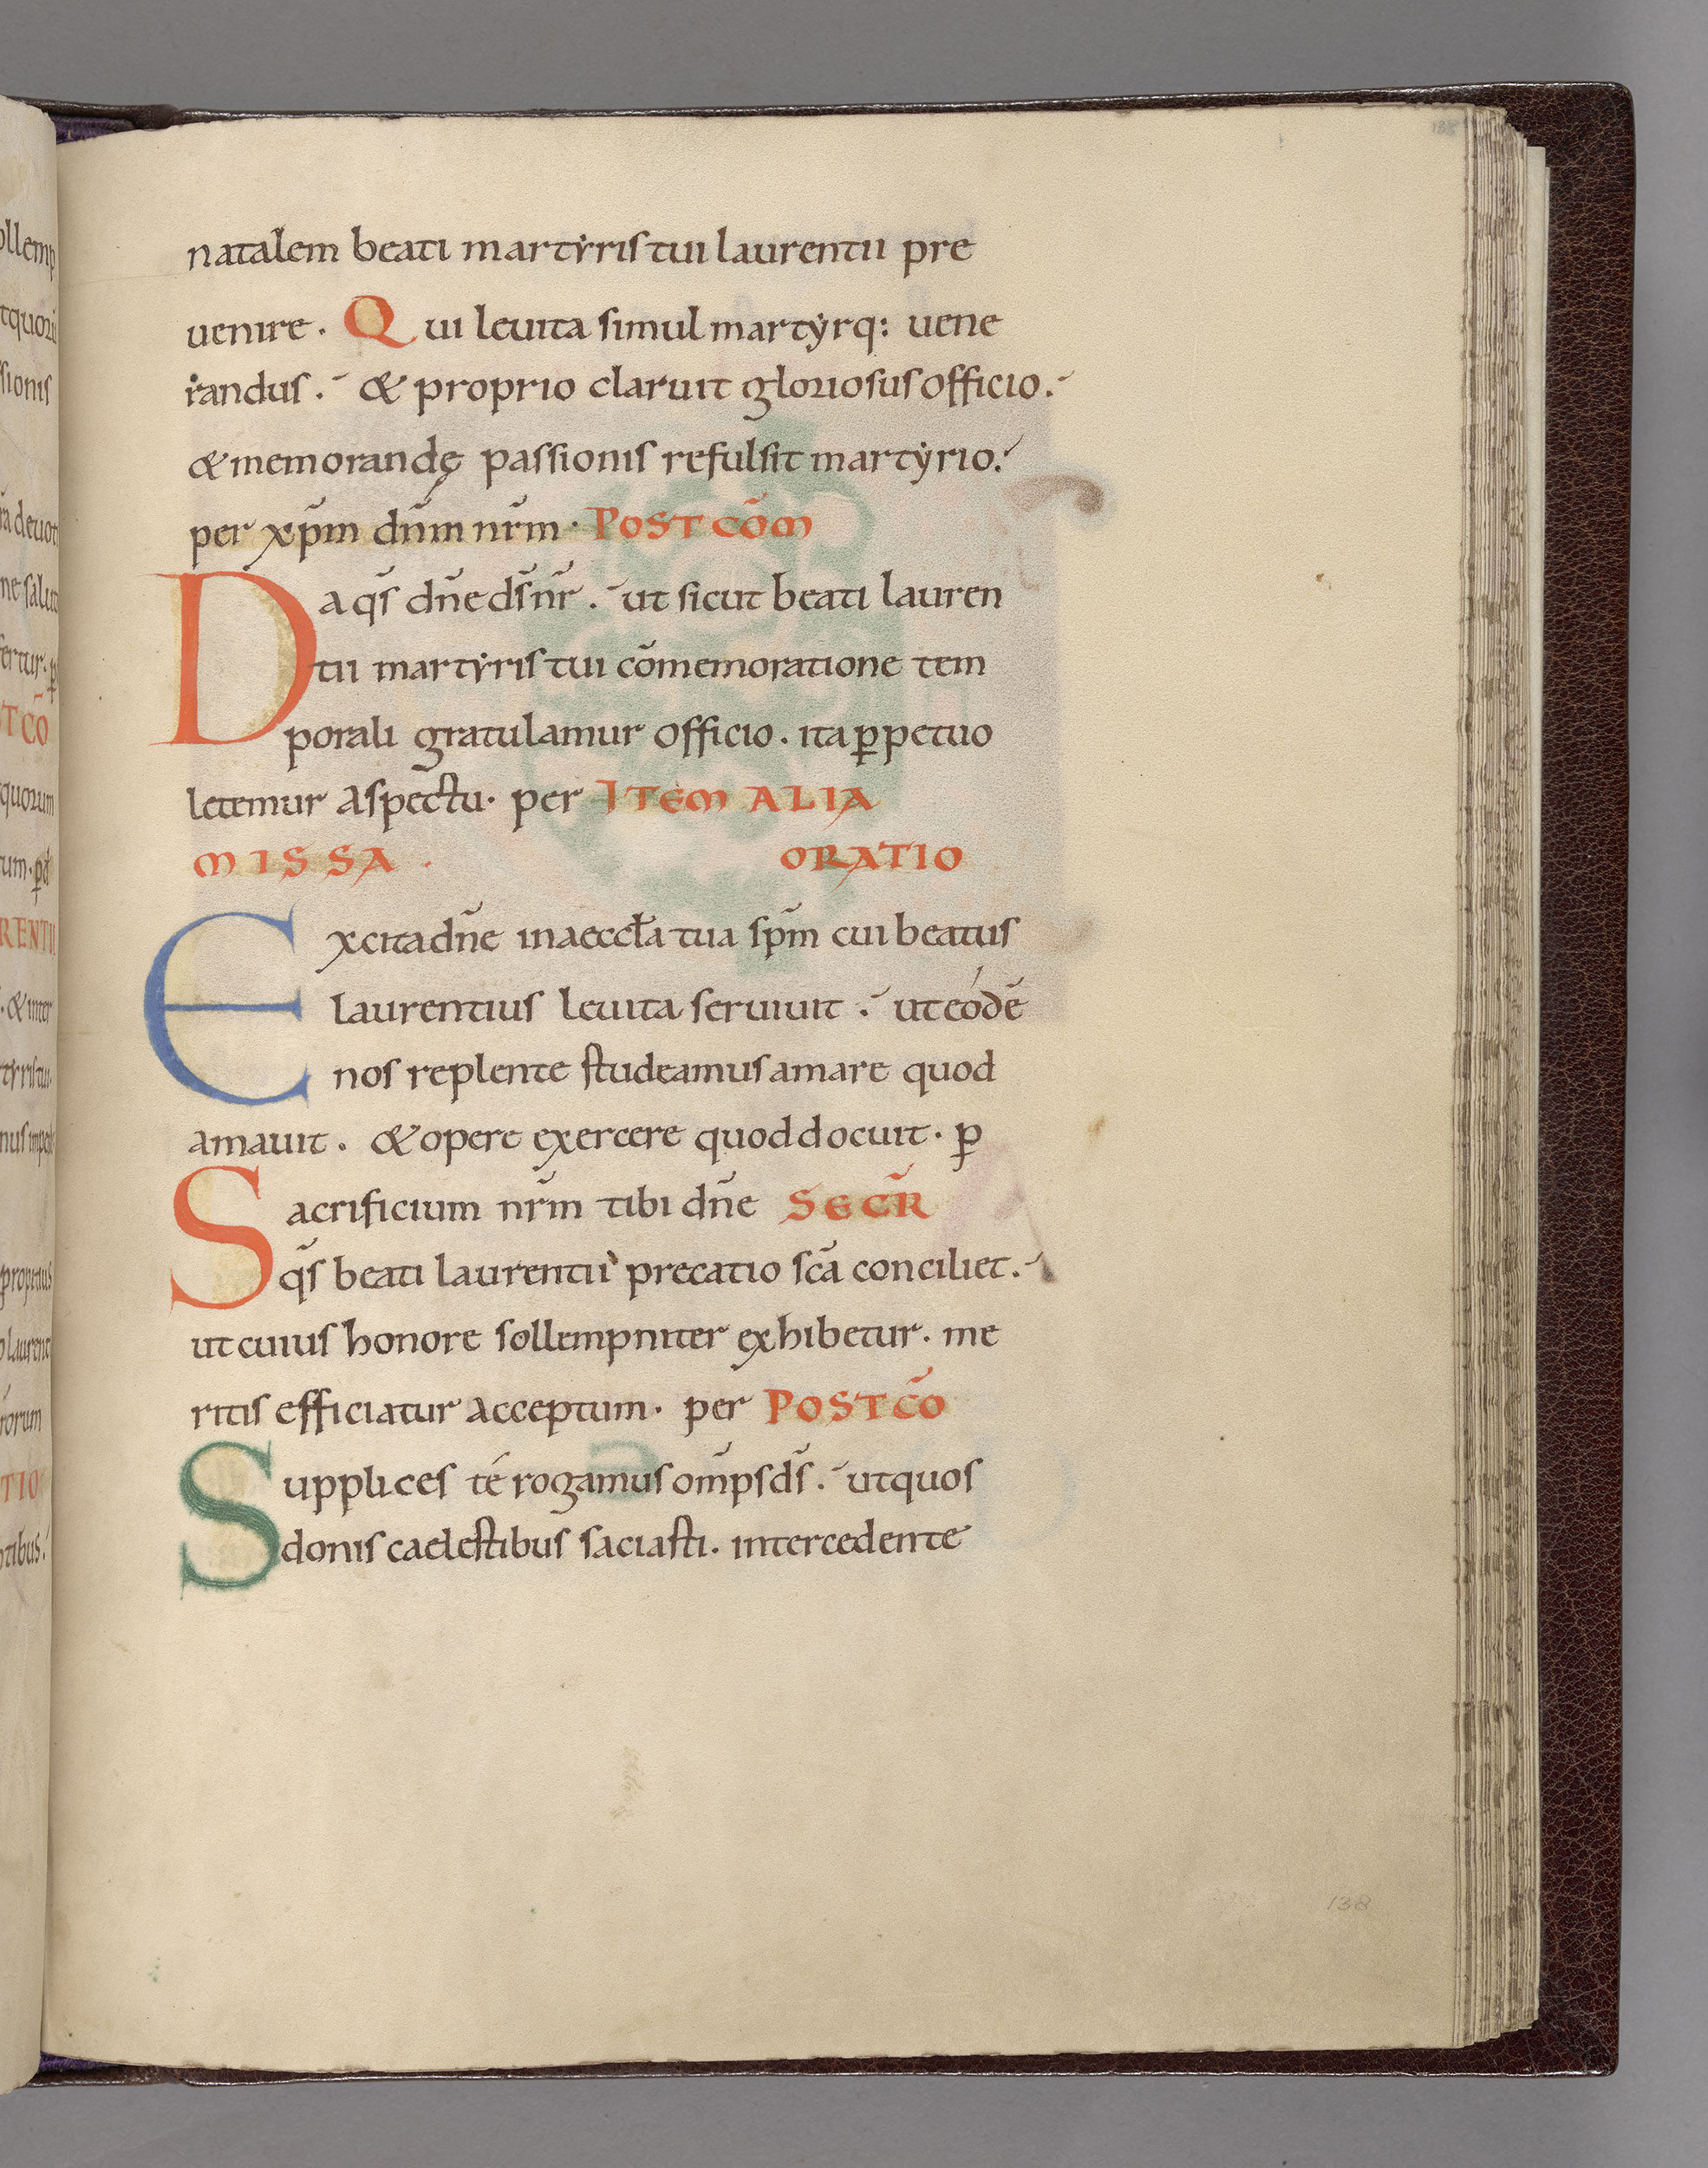 natalem beati martyris tui laurentii pre
uenire. Qui leuita simul martyrq: uene
randus. & proprio claruit gloriosus officio.
& memorandę passionis refulsit martyrio.
per xp̄m dn̄m nr̄m. POST COM̄
Da qs̄ dn̄e ds̄ nr̄. ut sicut beati lauren
tii martyris tui cōmemoratione tem
porali gratulamur officio. ita ꝑpetuo
letemur aspectu. per ITEM ALIA
MISSA. ORATIO
Excita dn̄e in aeccła tua sp̄m cui beatus
laurentius leuita seruiuit. ut eódē
nos replente studeamus amare quod
amauit. & opere exercere quod docuit. ꝑ
Sacrificium nr̄m tibi dn̄e SECR̄
qs̄ beati laurentii precatio sc̄a conciliet.
ut cuius honore sollempniter exhibetur. me
ritis efficiatur acceptum. per POST CŌ
Supplices té rogamus om̄ps ds̄. ut quos
donis caelestibus saciasti. intercedente
138